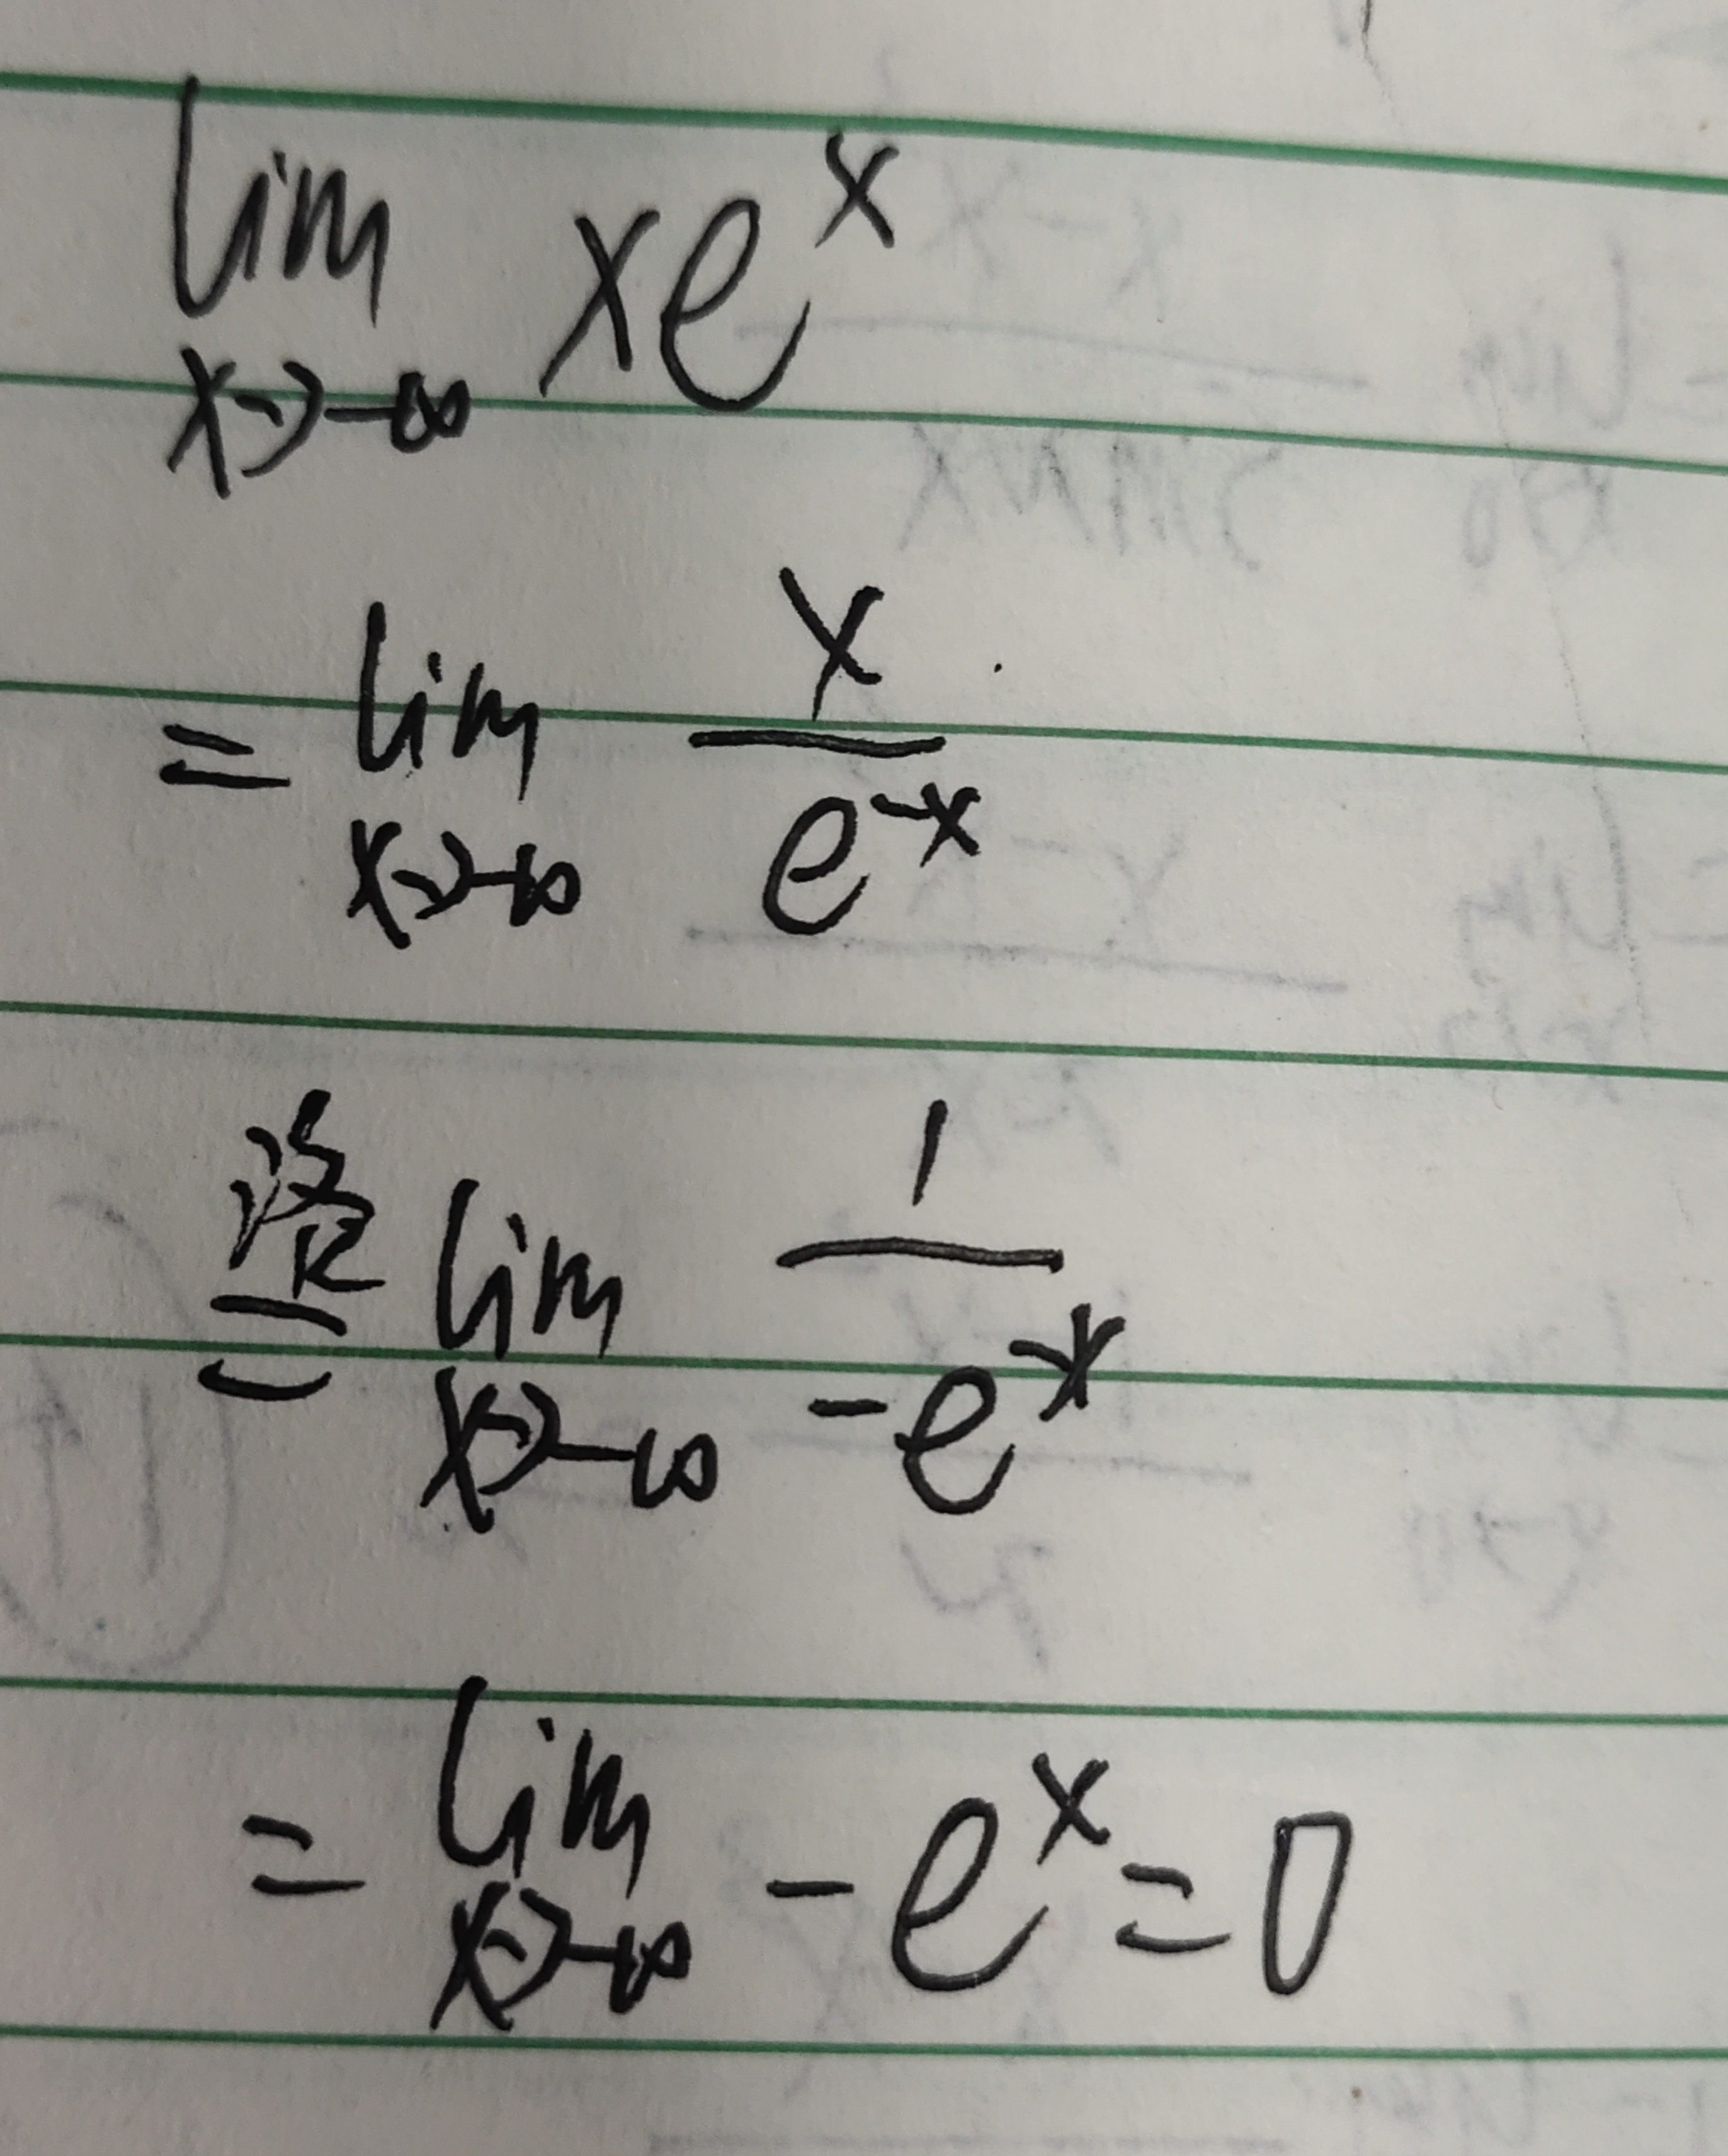 lim x→-∞ xe^x
= lim x→-∞ x/e^{-x}
洛 = lim x→-∞ 1/-e^{-x}
= lim x→-∞ -e^x = 0